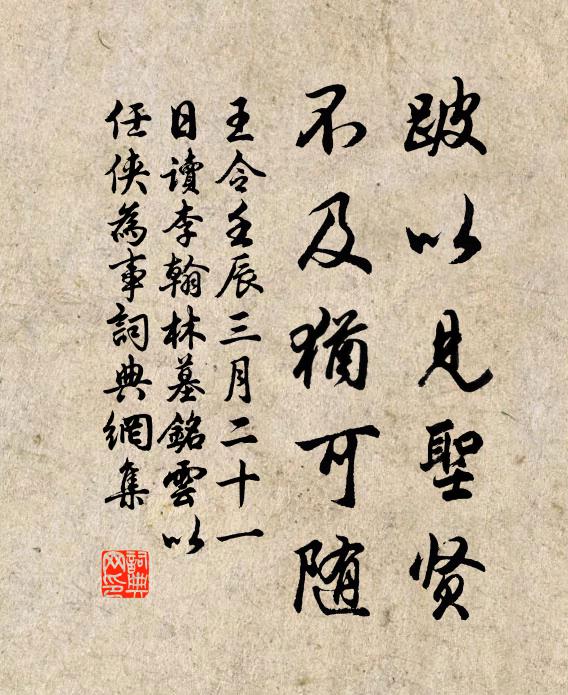 跛以見聖贤
不及猶可随
王令壬辰三月二十一
日讀李翰林墓銘雲以
任俠為事詞典網集
詞典
网印